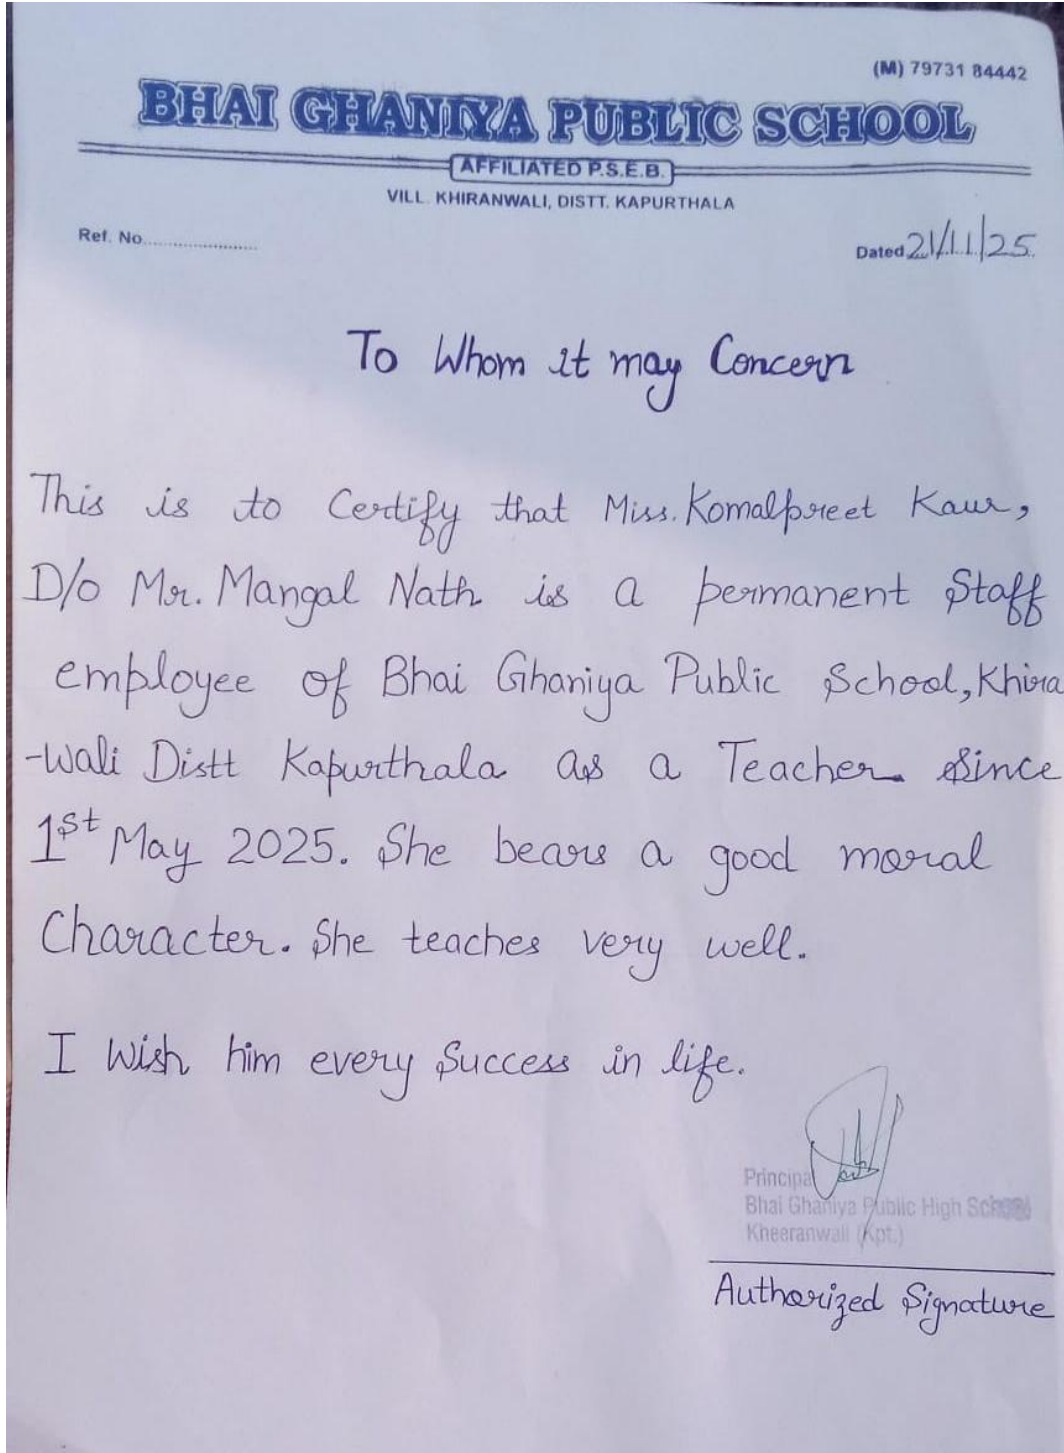 (M) 79731 84442
BHAI GHANIYA PUBLIC SCHOOL
AFFILIATED P.S.E.B.
VILL. KHIRANWALI, DISTT. KAPURTHALA
Ref. No......................
Dated 21/11/25
To Whom it may Concern
This is to Certify that Miss. Komalpreet Kaur,
D/o Mr. Mangal Nath is a permanent Staff
employee of Bhai Ghaniya Public School, Khira
-Wali Distt Kapurthala as a Teacher since
1st May 2025. She bears a good moral
Character. She teaches very well.
I Wish him every Success in life.
Principal
Bhai Ghaniya Public High School
Kheeranwali (Kpt.)
Authorized Signature